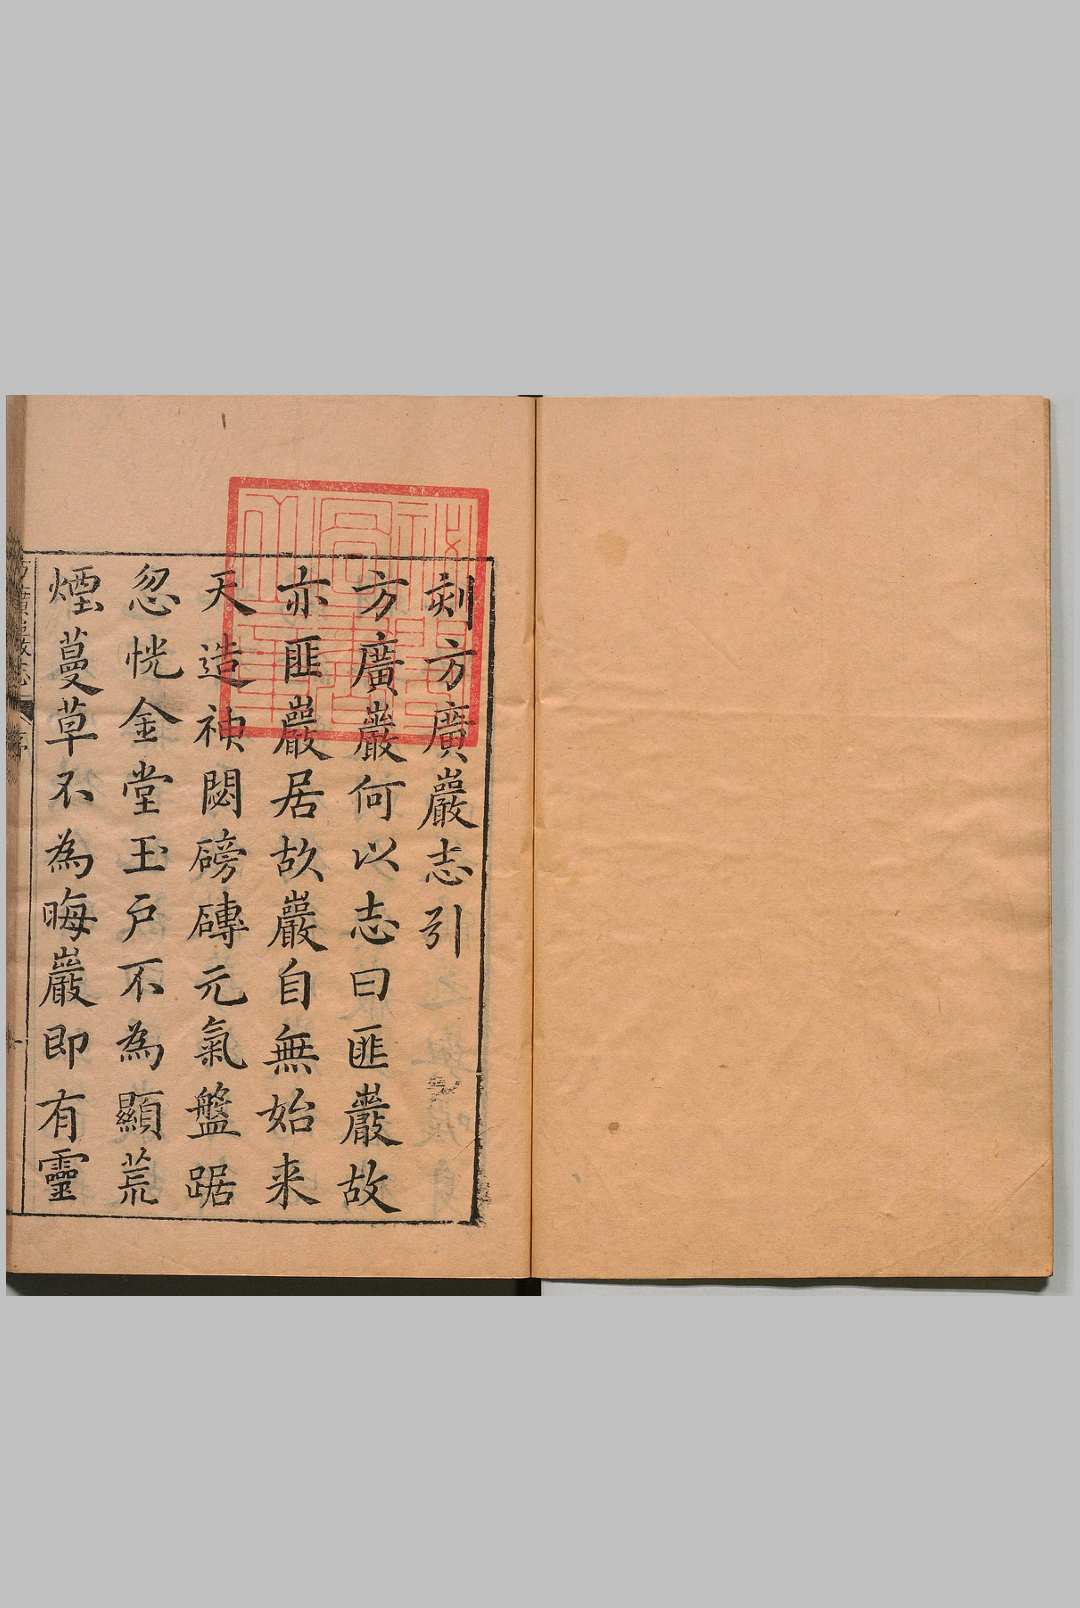 刻方廣巖志引
方廣巖何以志曰匪巖故
亦匪巖居故巖自無始来
天造神閟磅礡元氣盤踞
忽恍金堂玉戸不為顯荒
煙蔓草不為晦巖即有靈
方廣巖志
序